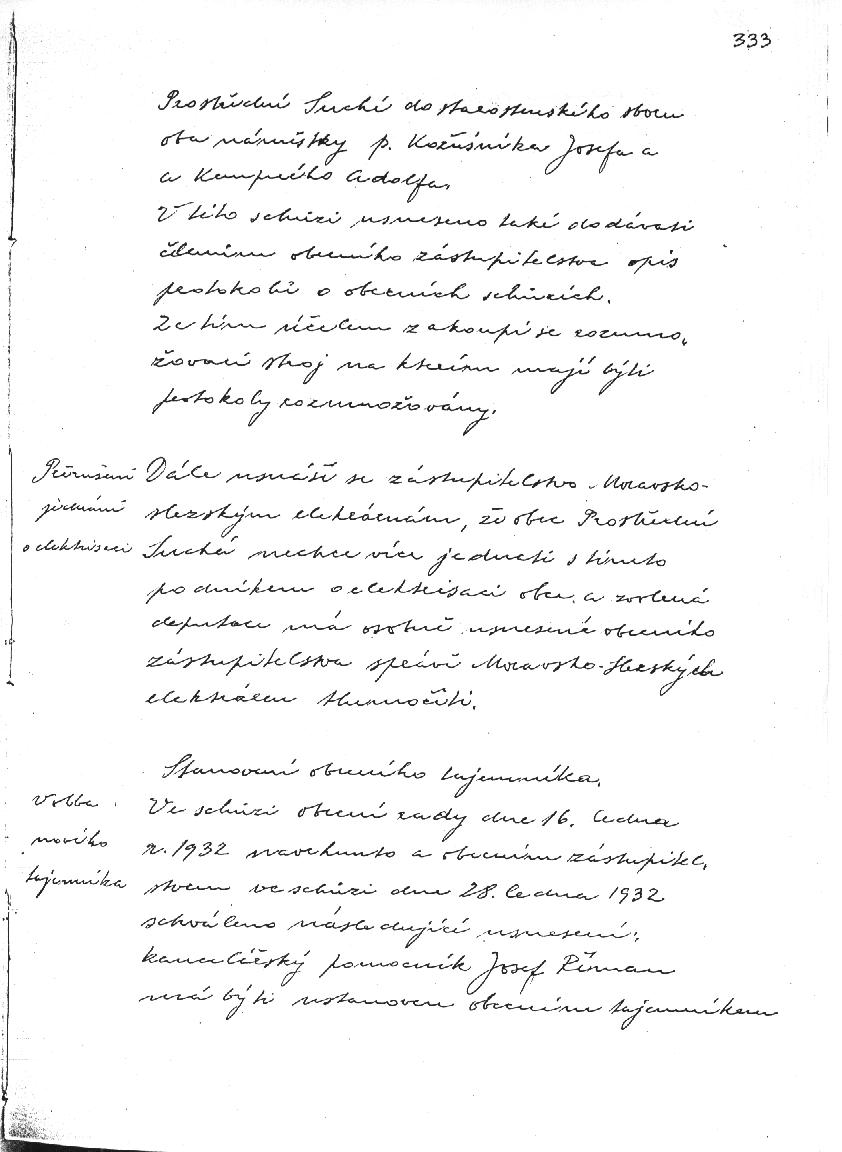 333
Prostřední Suché do starostenského sboru
oba náměstky p. Kožušníka Josefa a
a Kempného Adolfa.
V této schůzi usneseno také dodávati
členům obecního zastupitelstva opis
protokolů o obecních schůzích.
Za tím účelem zakoupí se rozmno„
žovací stroj na kterém mají býti
protokoly rozmnožovány.
Přerušení
jednání
o elektrisaci
Dále usnáší se zástupitelstvo Moravsko-
slezským elektrárnám, že obec Prostřední
Suchá nechce více jednati s tímto
podnikem o elektrisaci obce, a zvolená
deputace má osobně usnesené obecního
zástupitelstva správě Moravsko-Slezských
elektráren tlumočiti.
Stanovení obecního tajemníka.
Volba
nového
tajemníka
Ve schůzi obecní rady dne 16. ledna
r. 1932 navrhnuto a obecním zástupitel„
stvem ve schůzi dne 28. ledna 1932
schváleno následující usnesení:
kancelářský pomocník Josef Říman
má býti ustanoven obecním tajemníkem